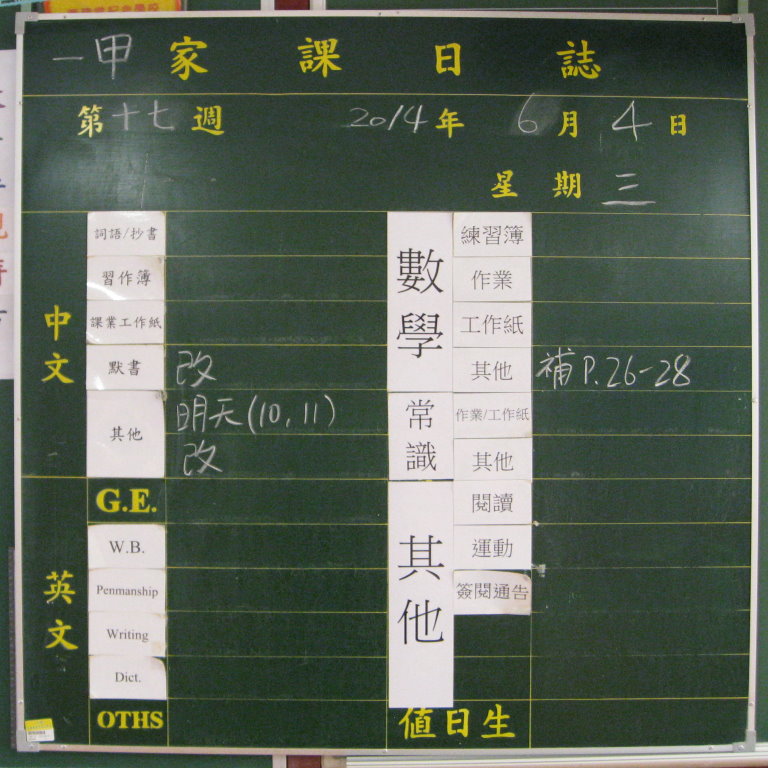 一甲 家 課 日 誌
第十七週 2014年 6月 4日
星 期 三
中文
詞語/抄書
習作簿
課業工作紙
默書 改
其他 明天(10,11)
改
英文
G.E.
W.B.
Penmanship
Writing
Dict.
OTHS
數學
練習簿
作業
工作紙
其他 補P.26-28
常識
作業/工作紙
其他
其他
閱讀
運動
簽閱通告
值日生